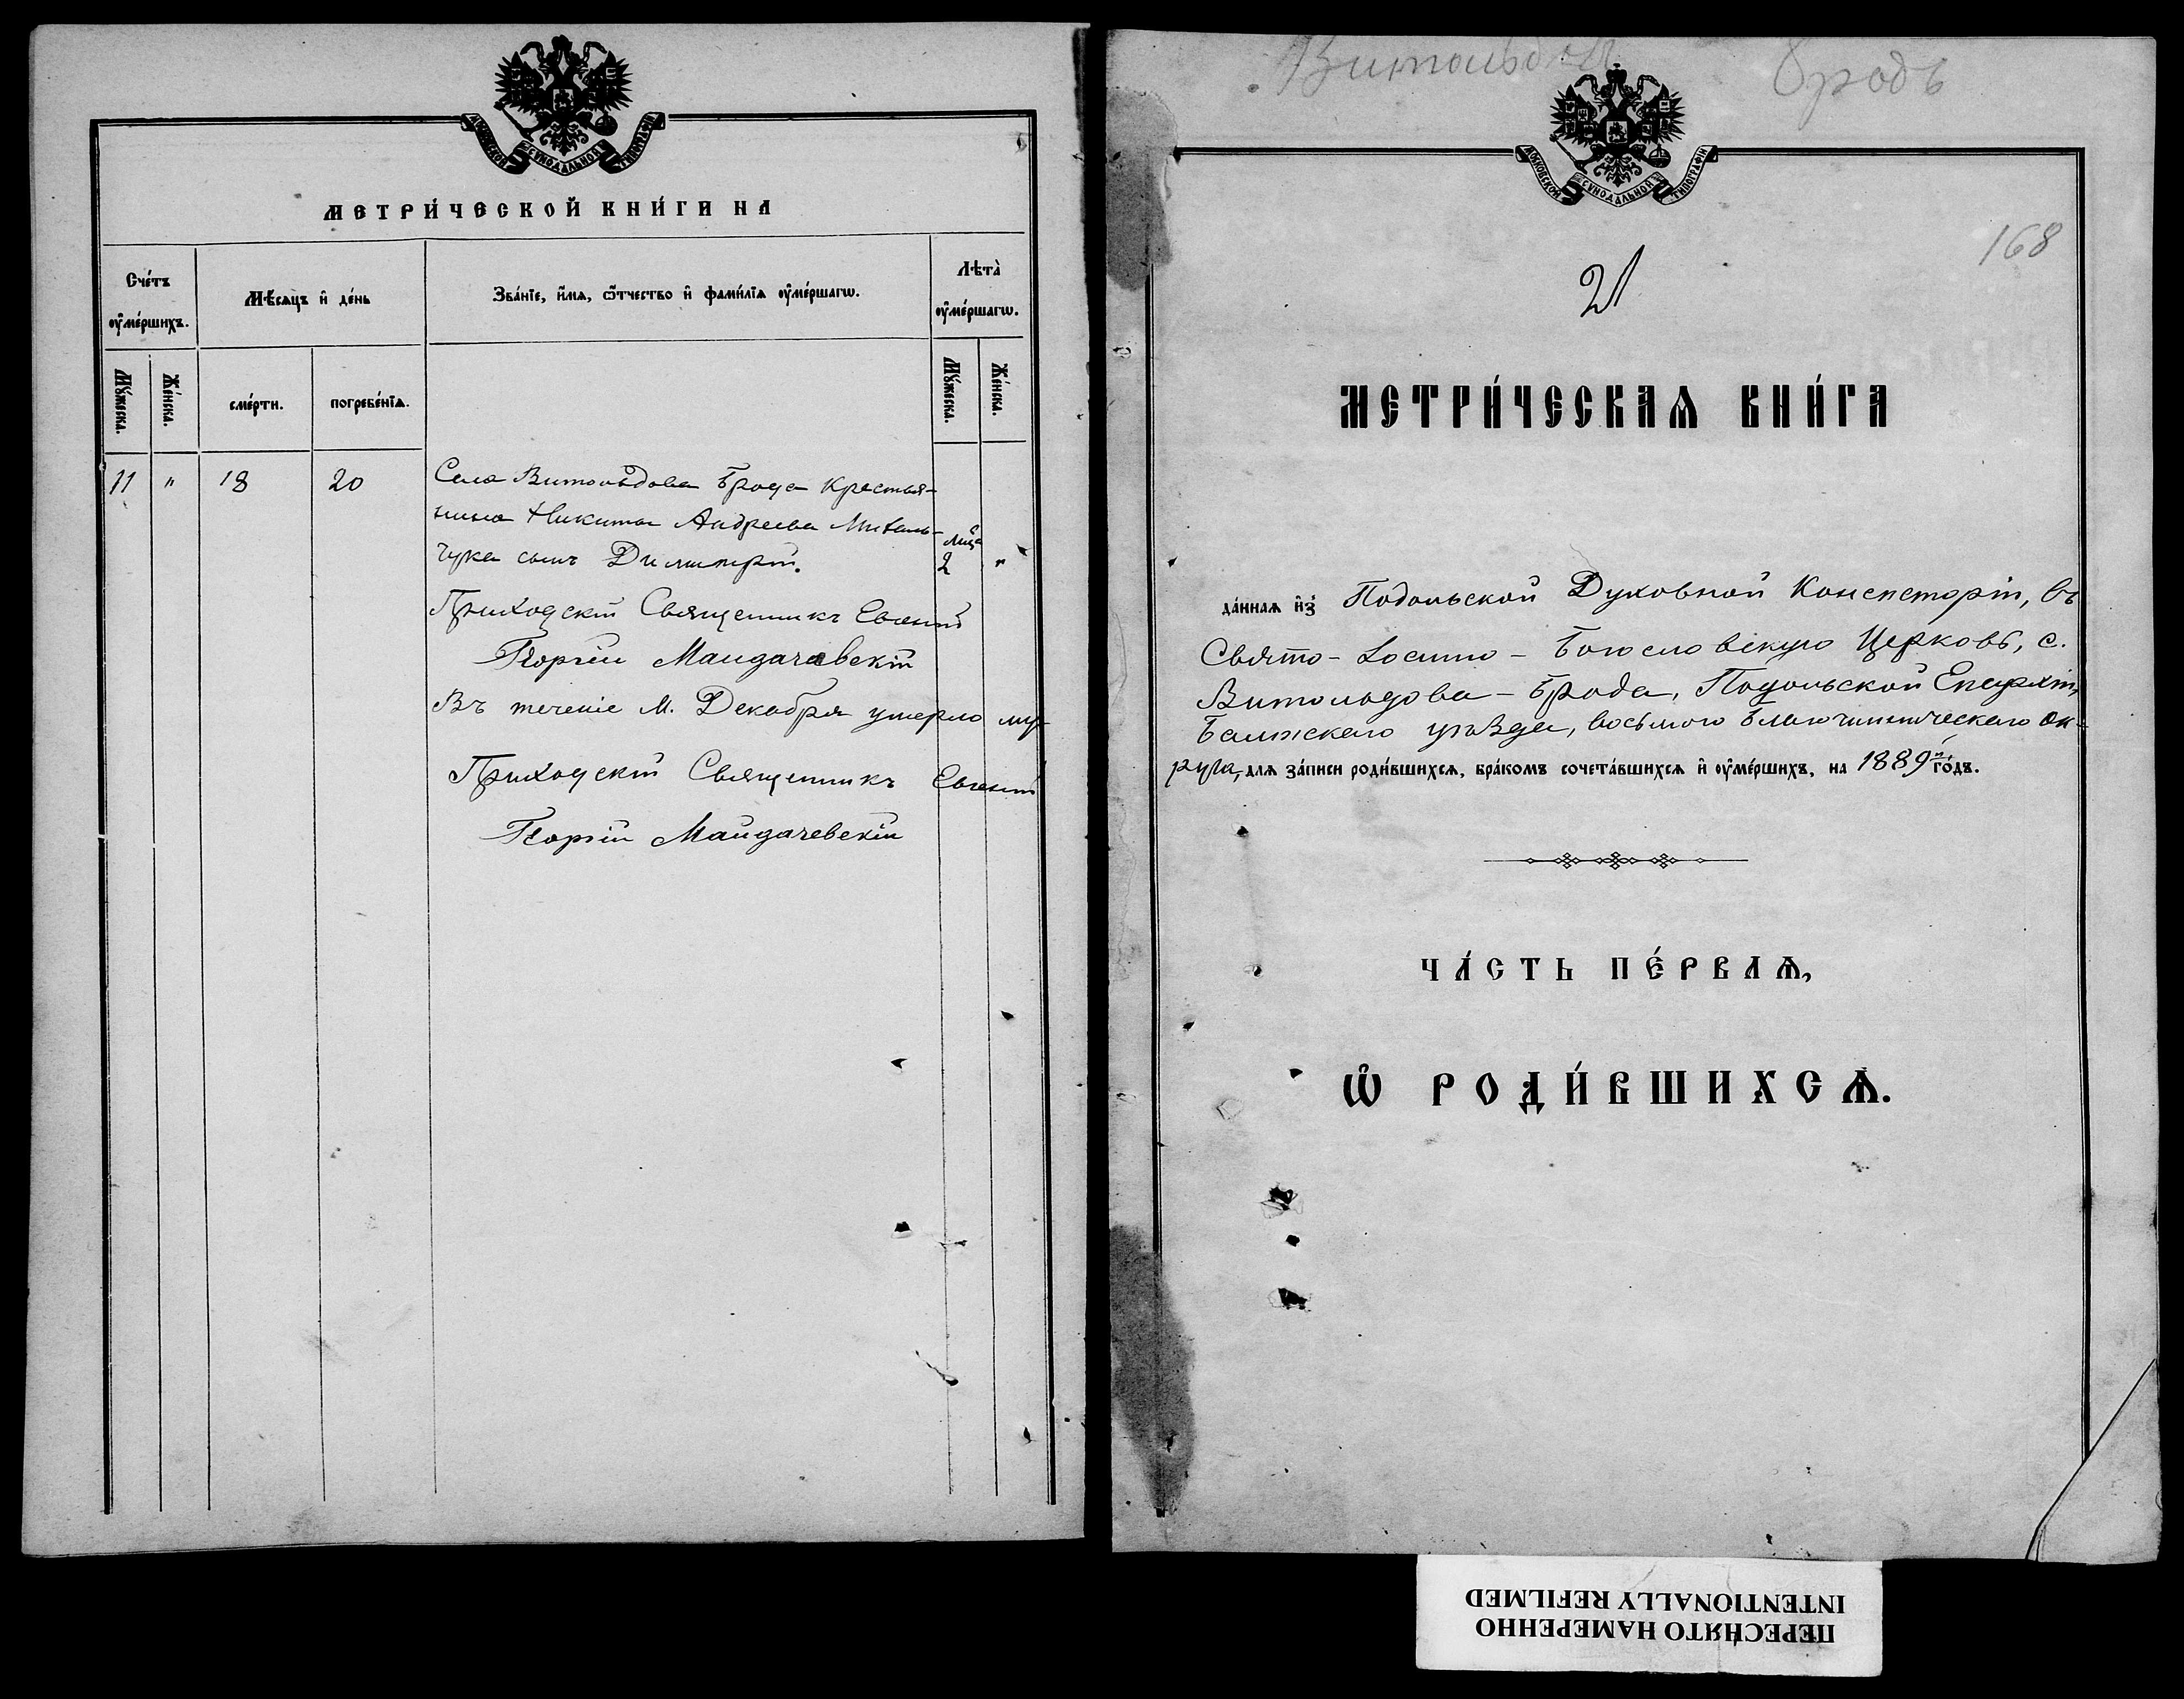 МОСКОВСКОЙ СѴНОДАЛЬНОЙ ТИПОГРАФІИ
МЕТРИ́ЧЕСКОЙ КНИ́ГИ НА
Сче́тъ ᲂу҆ме́ршихъ.
Мѣ́сяцъ и҆ де́нь
Зва́нїе, и҆́мѧ, ѻ҆́тчество и҆ фами́лїѧ ᲂу҆ме́ршагѡ.
Лѣта̀ ᲂу҆ме́ршагѡ.
Мꙋ́жеска.
Же́нска.
сме́рти.
погребе́нїѧ.
Мꙋ́жеска.
Же́нска.
11 " 18 20 Села Витольдова Брода Крестья-
нина Никиты Андреева Михаль-
чука сынъ Димитрій. мца 2 "
Приходскій Священникъ Евгеній
Георгіи Майдачевскій
Въ теченіе М. Декабря умерло
Приходскій Священникъ Евгеній
Георгіи Майдачевскій
Витольдов Бродъ
МОСКОВСКОЙ СѴНОДАЛЬНОЙ ТИПОГРАФІИ
168
21
МЕТРИ́ЧЕСКАѦ КНИ́ГА
да́ннаѧ и҆з̾ Подольской Духовной Консисторіи, въ
Свято-Іоанно-Богословскую Церковь, с.
Витольдова-Брода, Подольской Епархіи,
Балтскаго уѣзда, восьмого Благочинническаго ок-
руга, длѧ за́писи роди́вшихсѧ, бра́комъ сочета́вшихсѧ и҆ ᲂу҆ме́ршихъ, на 1889й го́дъ.
ЧА́СТЬ ПЕ́РВАѦ,
Ѡ҆ РОДИ́ВШИХСѦ.
ПЕРЕСНЯТО НАМЕРЕННО
INTENTIONALLY REFILMED